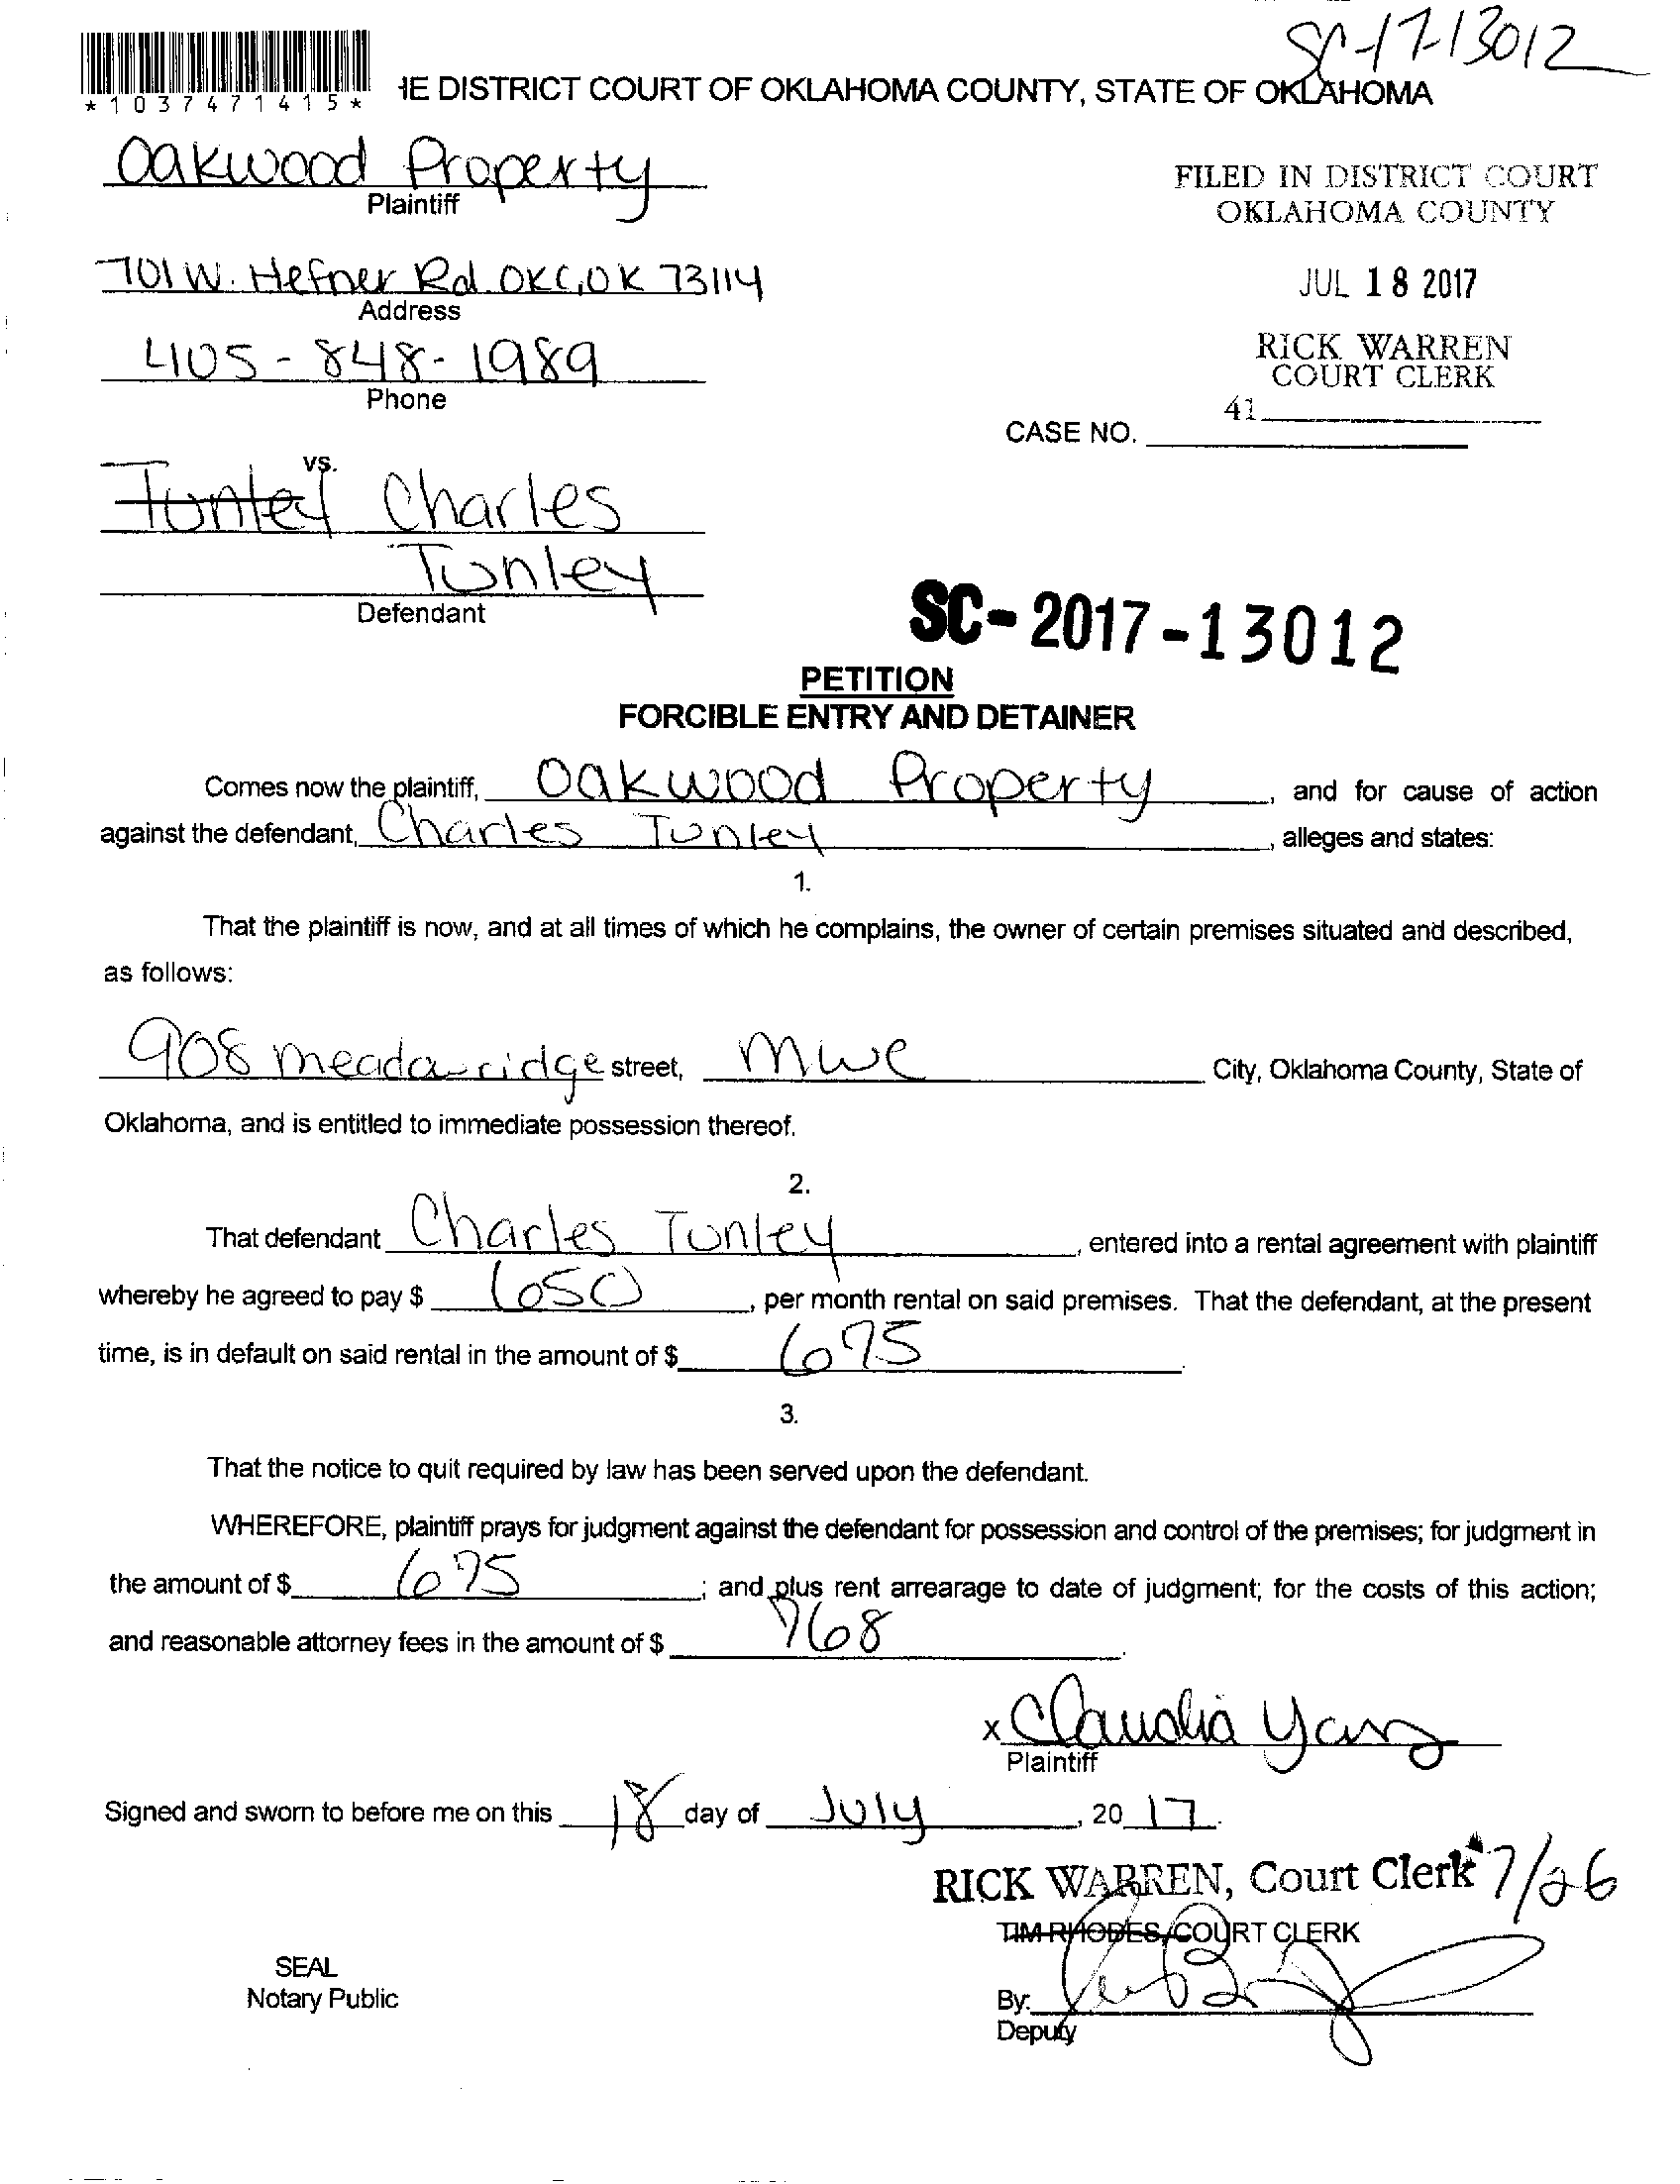 SC-17-13012
*1037471415* HE DISTRICT COURT OF OKLAHOMA COUNTY, STATE OF OKLAHOMA
Oakwood Property
Plaintiff
FILED IN DISTRICT COURT
OKLAHOMA COUNTY
701 W. Hefner Rd. OKC, OK 73114
Address
JUL 18 2017
405-848-1989
Phone
RICK WARREN
COURT CLERK
41
CASE NO.
vs.
Tunley Charles
Tunley
Defendant
SC-2017-13012
PETITION
FORCIBLE ENTRY AND DETAINER
Comes now the plaintiff, Oakwood Property, and for cause of action
against the defendant, Charles Tunley, alleges and states:
1.
That the plaintiff is now, and at all times of which he complains, the owner of certain premises situated and described,
as follows:
908 meadowridge street, MWC City, Oklahoma County, State of
Oklahoma, and is entitled to immediate possession thereof.
2.
That defendant Charles Tunley, entered into a rental agreement with plaintiff
whereby he agreed to pay $ 650, per month rental on said premises. That the defendant, at the present
time, is in default on said rental in the amount of $ 675.
3.
That the notice to quit required by law has been served upon the defendant.
WHEREFORE, plaintiff prays for judgment against the defendant for possession and control of the premises; for judgment in
the amount of $ 675; and plus rent arrearage to date of judgment; for the costs of this action;
and reasonable attorney fees in the amount of $ 768.
x Claudia
Plaintiff
Signed and sworn to before me on this 18 day of July, 2017.
RICK WARREN, Court Clerk 7/26
TIM RHODES, COURT CLERK
SEAL
Notary Public
By:
Deputy